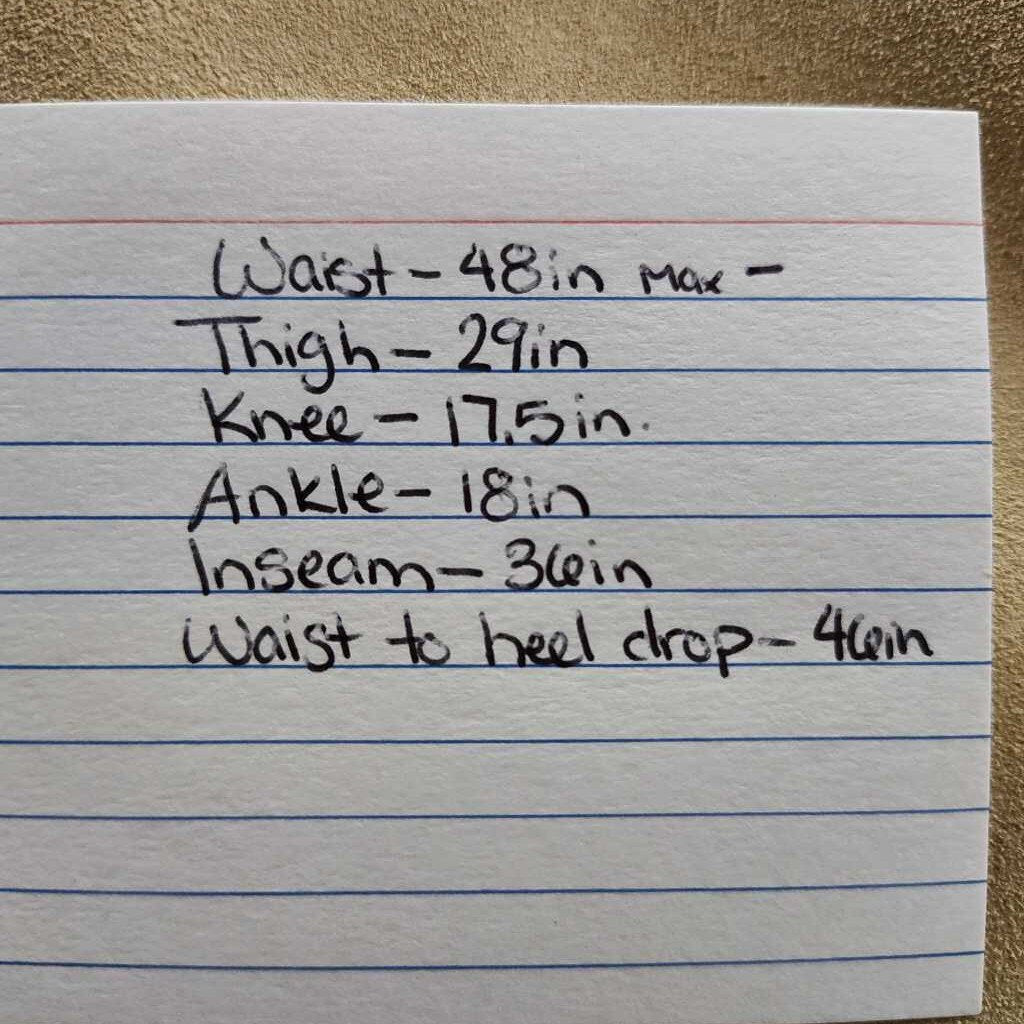 Waist - 48in Max -
Thigh - 29in
Knee - 17.5in.
Ankle - 18in
Inseam - 36in
Waist to heel drop - 46in